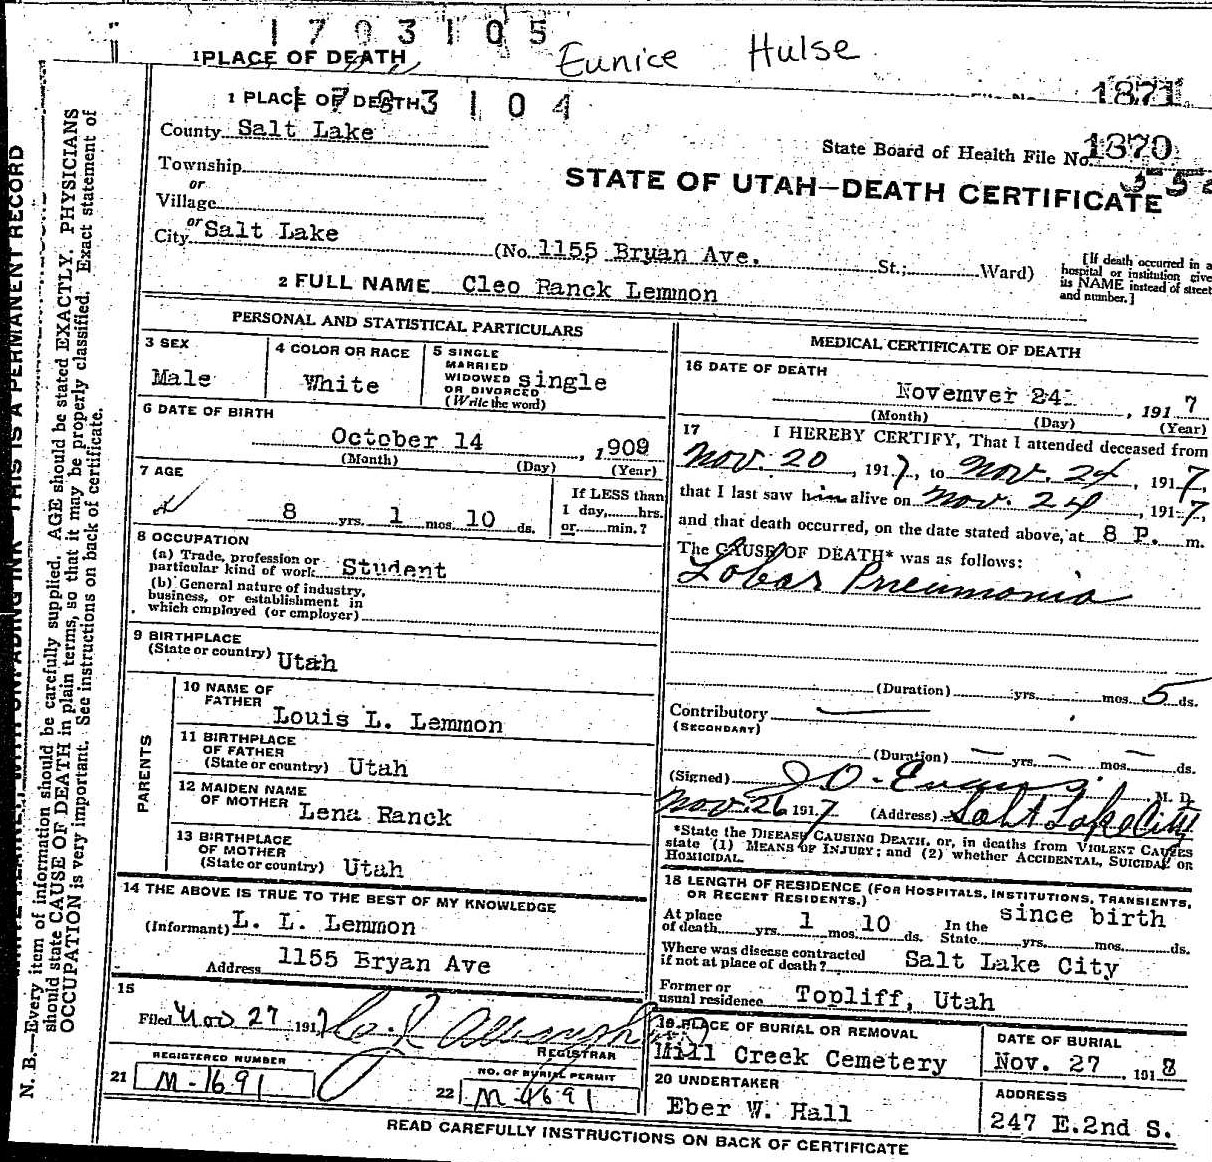 1703105
Eunice Hulse
1 PLACE OF DEATH
1871
1 PLACE OF DEATH 1703104
County Salt Lake
State Board of Health File No. 1870
Township
or
STATE OF UTAH—DEATH CERTIFICATE
Village
or
City Salt Lake (No. 1155 Bryan Ave. St.; Ward)
[If death occurred in a
hospital or institution give
its NAME instead of street
and number.]
2 FULL NAME Cleo Ranck Lemmon
PERSONAL AND STATISTICAL PARTICULARS
3 SEX
Male
4 COLOR OR RACE
White
5 SINGLE
MARRIED
WIDOWED single
OR DIVORCED
(Write the word)
6 DATE OF BIRTH
October 14 , 1909
(Month) (Day) (Year)
7 AGE
8 yrs. 1 mos. 10 ds.
If LESS than
1 day, hrs.
or min.?
8 OCCUPATION
(a) Trade, profession or
particular kind of work Student
(b) General nature of industry,
business, or establishment in
which employed (or employer)
9 BIRTHPLACE
(State or country) Utah
PARENTS
10 NAME OF
FATHER
Louis L. Lemmon
11 BIRTHPLACE
OF FATHER
(State or country) Utah
12 MAIDEN NAME
OF MOTHER Lena Ranck
13 BIRTHPLACE
OF MOTHER
(State or country) Utah
14 THE ABOVE IS TRUE TO THE BEST OF MY KNOWLEDGE
(Informant) L. L. Lemmon
Address 1155 Bryan Ave
15
Filed Nov 27 1917
REGISTRAR
REGISTERED NUMBER
21 M-1691
NO. OF BURIAL PERMIT
22 M-1691
MEDICAL CERTIFICATE OF DEATH
16 DATE OF DEATH
Novemver 24 , 191 7
(Month) (Day) (Year)
17 I HEREBY CERTIFY, That I attended deceased from
Nov. 20 , 1917, to Nov. 24 , 1917,
that I last saw him alive on Nov. 24 , 1917,
and that death occurred, on the date stated above, at 8 P. m.
The CAUSE OF DEATH* was as follows:
Lobar Pneumonia
(Duration) yrs. mos. 5 ds.
Contributory —
(SECONDARY)
(Duration) — yrs. — mos. — ds.
(Signed) J O. Evans M. D.
Nov. 26 1917 (Address) Salt Lake City
*State the DISEASE CAUSING DEATH, or, in deaths from VIOLENT CAUSES
state (1) MEANS OF INJURY; and (2) whether ACCIDENTAL, SUICIDAL or
HOMICIDAL.
18 LENGTH OF RESIDENCE (FOR HOSPITALS, INSTITUTIONS, TRANSIENTS,
OR RECENT RESIDENTS.)
At place
of death yrs. 1 mos. 10 ds.
In the since birth
State yrs. mos. ds.
Where was disease contracted
if not at place of death? Salt Lake City
Former or
usual residence Topliff, Utah
19 PLACE OF BURIAL OR REMOVAL
Mill Creek Cemetery
DATE OF BURIAL
Nov. 27 , 191 8
20 UNDERTAKER
Eber W. Hall
ADDRESS
247 E.2nd S.
READ CAREFULLY INSTRUCTIONS ON BACK OF CERTIFICATE
N. B.—Every item of information should be carefully supplied. AGE should be stated EXACTLY. PHYSICIANS
should state CAUSE OF DEATH in plain terms, so that it may be properly classified. Exact statement of
OCCUPATION is very important. See instructions on back of certificate.
THIS IS A PERMANENT RECORD